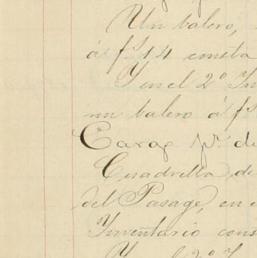 Un balero,
á fˢ 14 consta
Y en el 2º In
un balero á fˢ
Caraz pʳ de
Cuadrilla, de
del Pasage, en e
Inventario cons
Y en el 2º I